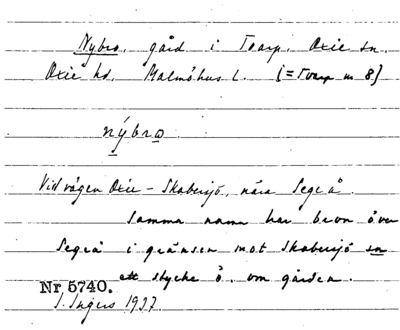 Nybro, gård i Toarp, Oxie sn.
Oxie hd. Malmöhus l. (=Toarp nr 8)
nýbro
Vid vägen Oxie - Skabersjö, nära Segeå.
Samma namn har bron över
Segeå i gränsen mot Skabersjö sn
ett stycke ö. om gården.
Nr 5740.
I. Ingers 1937.